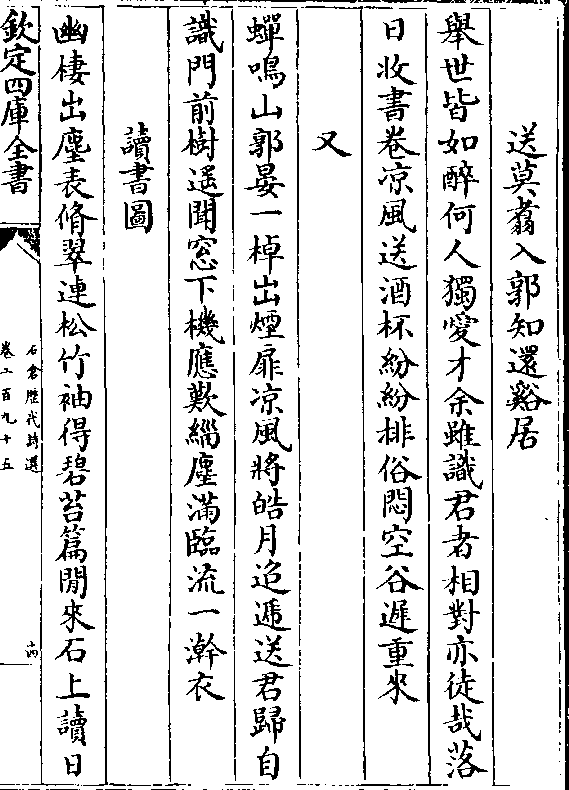 送莫翥入郭知還谿居
舉世皆如醉何人獨愛才余雖識君者相對亦徒哉落
日收書卷凉風送酒杯紛紛排俗悶空谷遲重來
又
蟬鳴山郭晏一棹出煙扉凉風將皓月迢遞送君歸自
識門前樹遥聞窓下機應歎緇塵滿臨流一澣衣
讀書圖
幽棲出塵表脩翠連松竹袖得碧苔篇閒來石上讀日
欽定四庫全書
石倉歴代詩選
卷二百九十五